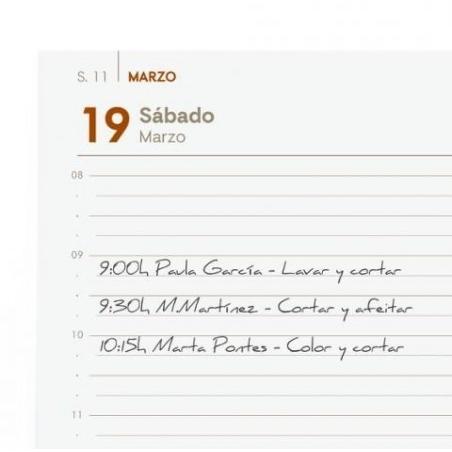 S. 11 MARZO
19 Sábado
Marzo
08
09
9:00h Paula García - Lavar y cortar
9:30h M.Martínez - Cortar y afeitar
10
10:15h Marta Pontes - Color y cortar
11